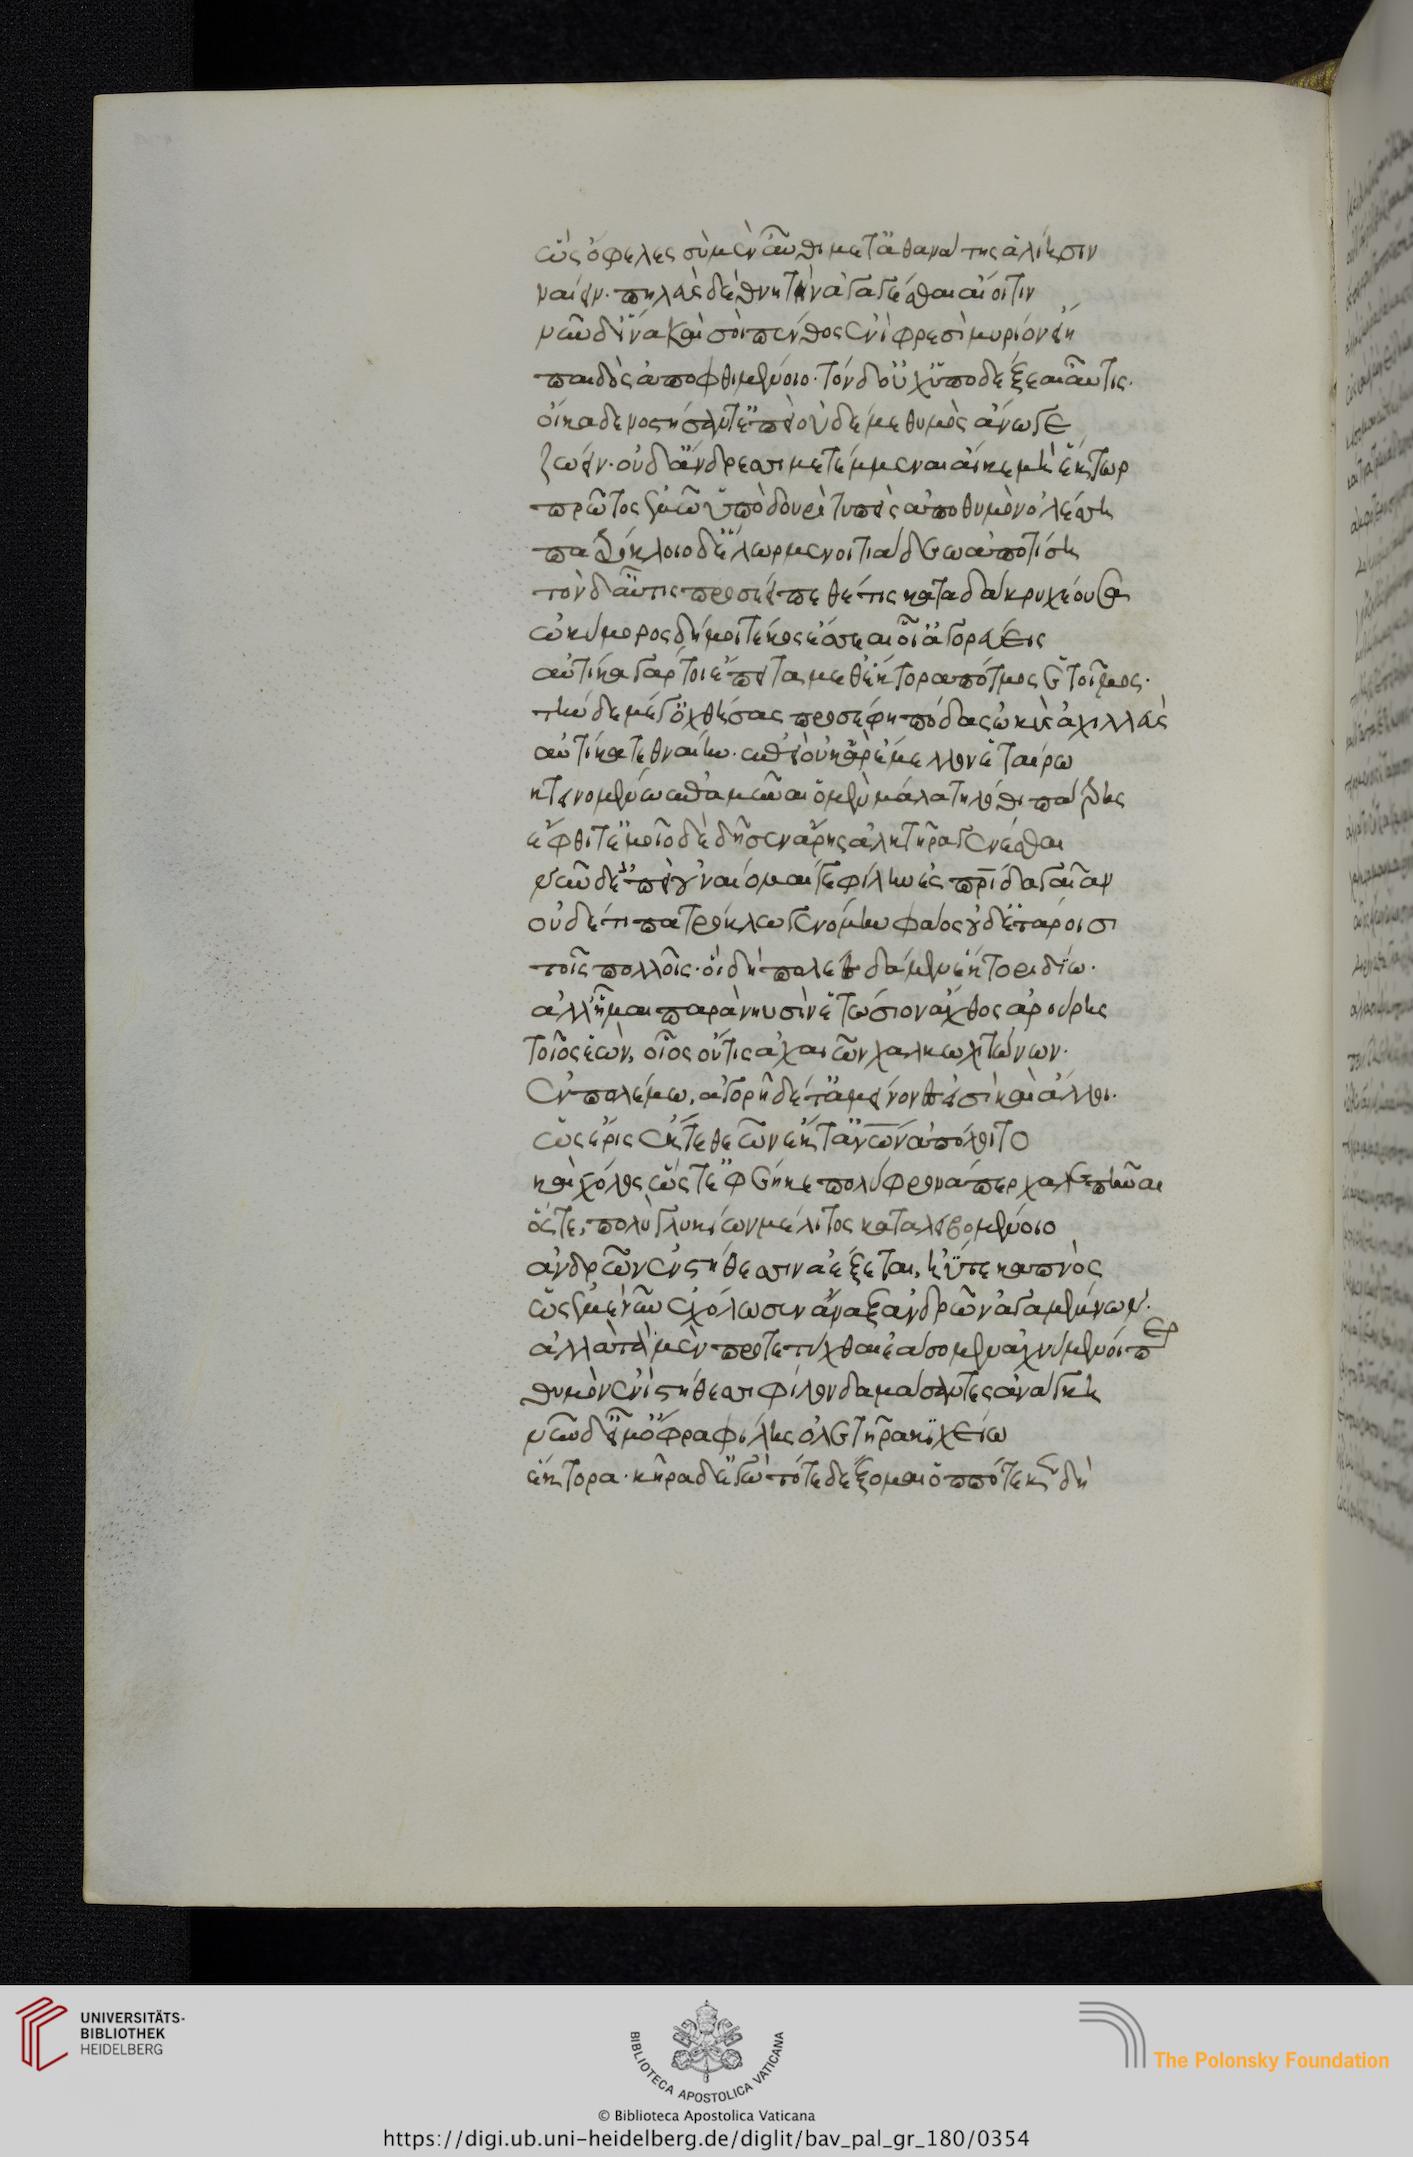 ὣς ὄφελες σὺ μὲν αὖθι μετ' ἀθανάτης ἁλίησιν
ναίειν· πηλεὺς δὲ θνητὴν ἀγαγέσθαι ἄκοιτιν
νῦν δ' ἵνα καὶ σοὶ πένθος ἐνὶ φρεσὶ μυρίον εἴη
παιδὸς ἀποφθιμένοιο· τὸν δ' οὐχ ὑποδέξεαι αὖτις.
οἴκαδε νοστήσαντ' ἐπεὶ οὐδέ με θυμὸς ἄνωγε
ζώειν· οὐδ' ἄνδρεσσι μετέμμεναι αἴκε μὴ ἕκτωρ
πρῶτος ἐμῷ ὑπὸ δουρὶ τυπεὶς ἀπὸ θυμὸν ὀλέσση
πατρόκλοιο δ' ἕλωρ μενοιτιάδεω ἀποτίση
τὸν δ' αὖτις προσέειπε θέτις κατὰ δάκρυ χέουσα
ὠκύμορος δή μοι τέκος ἔσσεαι οἷ' ἀγορεύεις
αὐτίκα γάρ τοι ἔπειτα μεθ' ἕκτορα πότμος ἑτοῖμος.
τὴν δὲ μέγ' ὀχθήσας προσέφη πόδας ὠκὺς ἀχιλλεὺς
αὐτίκα τεθναίην· ἐπεὶ οὐκ ἄρ' ἔμελλον ἑταίρω
κτεινομένω ἐπαμῦναι ὁ μὲν μάλα τηλόθι πάτρης
ἔφθιτ' ἐμοῖο δὲ δῆσεν ἄρης ἀλκτῆρα γενέσθαι
νῦν δ' ἐπεὶ οὐ νέομαί γε φίλην ἐς πατρίδα γαῖαν
οὐδέ τι πατρόκλω γενόμην φάος οὐδ' ἑτάροισι
τοῖς πολλοῖς· οἳ δὴ πολεῖς δάμεν ἕκτορι δίω.
ἀλλ' ἧμαι παρὰ νηυσὶν ἐτώσιον ἄχθος ἀρούρης
τοῖος ἐὼν, οἷος οὔτις ἀχαιῶν χαλκωχιτώνων.
ἐν πολέμω, ἀγορῆ δέ τ' ἀμείνονές εἰσὶ καὶ ἄλλοι.
ὣς ἔρις ἔκ τε θεῶν ἔκ τ' ἀνῶν ἀπόλοιτο
καὶ χόλος ὥς τ' ἐφέηκε πολύφρονά περ χαλεπῆναι
ὅς τε, πολὺ γλυκίων μέλιτος καταλειβομένοιο
ἀνδρῶν ἐν στήθεσσιν ἀέξεται, ἠΰτε καπνὸς
ὣς ἐμὲ νῦν ἐχόλωσεν ἄναξ ἀνδρῶν ἀγαμέμνων.
ἀλλὰ τὰ μὲν προτετύχθαι ἐάσομεν ἀχνύμενοί περ
θυμὸν ἐνὶ στήθεσσι φίλον δαμάσαντες ἀνάγκη
νῦν δ' εἶμ' ὄφρα φίλης ὀλετῆρα κιχείω
ἕκτορα· κῆρα δ' ἐγὼ τότε δέξομαι ὁππότε κεν δὴ
UNIVERSITÄTS-
BIBLIOTHEK
HEIDELBERG
BIBLIOTECA APOSTOLICA VATICANA
The Polonsky Foundation
© Biblioteca Apostolica Vaticana
https://digi.ub.uni-heidelberg.de/diglit/bav_pal_gr_180/0354